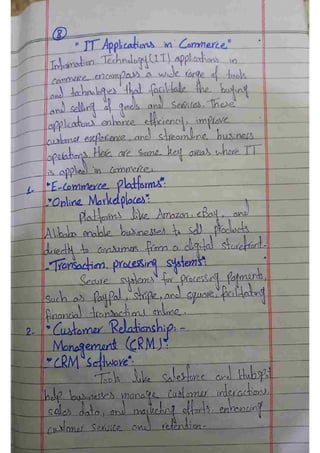 8
"IT Applications in Commerce"
Information Technology (IT) applications in
commerce encompass a wide range of tools
and technologies that facilitate the buying
and selling of goods and services. These
applications enhance efficiency, improve
customer experience, and streamline business
operations. Here are some key areas where IT
is applied in commerce.
1. "E-Commerce Platforms":
"Online Marketplaces":
Platforms like Amazon, eBay, and
Alibaba enable businesses to sell products
directly to consumers from a digital storefront.
"Transaction processing systems":
Secure systems for processing payments,
such as PayPal, Stripe, and Square, facilitating
financial transactions online.
2. "Customer Relationship. -
Management (CRM)":
"CRM Software":
Tools like Salesforce and HubSpot
help businesses manage customer interactions,
sales data, and marketing efforts, enhancing
customer service and retention.